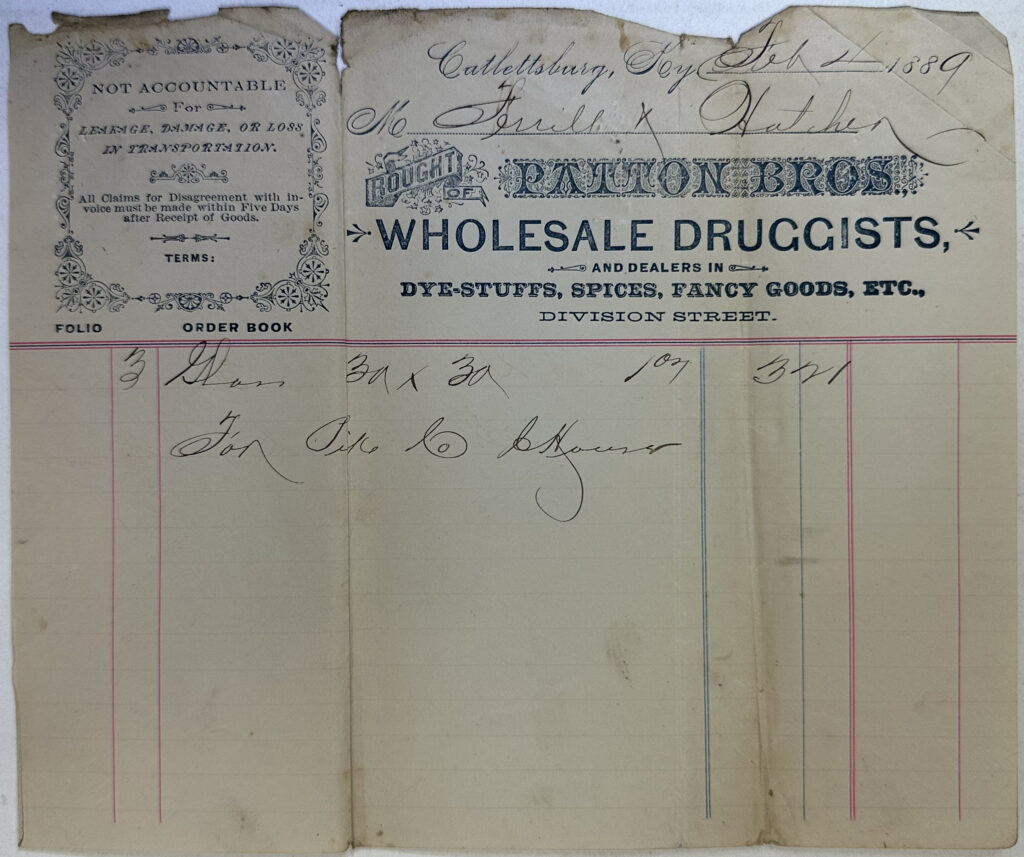 NOT ACCOUNTABLE
For
LEAKAGE, DAMAGE, OR LOSS
IN TRANSPORTATION.
All Claims for Disagreement with in-
voice must be made within Five Days
after Receipt of Goods.
TERMS:
FOLIO
ORDER BOOK
Catlettsburg, Ky Feb 4 1889
M Ferrill & Hatcher
BOUGHT OF PATTON BROS,
WHOLESALE DRUGGISTS,
AND DEALERS IN
DYE-STUFFS, SPICES, FANCY GOODS, ETC.,
DIVISION STREET.
3 Glass 30 x 30 107 321
For Pike Co C House